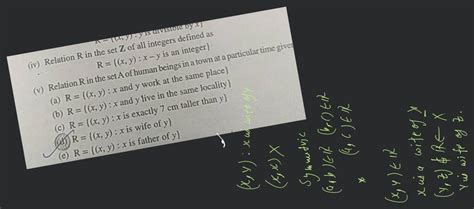 R = {(x, y) : y is divisible by x}
(iv) Relation R in the set Z of all integers defined as
R = {(x, y) : x – y is an integer}
(v) Relation R in the set A of human beings in a town at a particular time given
(a) R = {(x, y) : x and y work at the same place}
(b) R = {(x, y) : x and y live in the same locality}
(c) R = {(x, y) : x is exactly 7 cm taller than y}
(d) R = {(x, y) : x is wife of y}
(e) R = {(x, y) : x is father of y}
(x, y) : x is wife of y
(y, x) X
Symmetric
(a, b) ∈ R (b, c) ∈ R
(a, c) ∈ R
x
(x, y) ∈ R
x is a wife of y
(y, z) ∉ R ← X
y is wife of z.